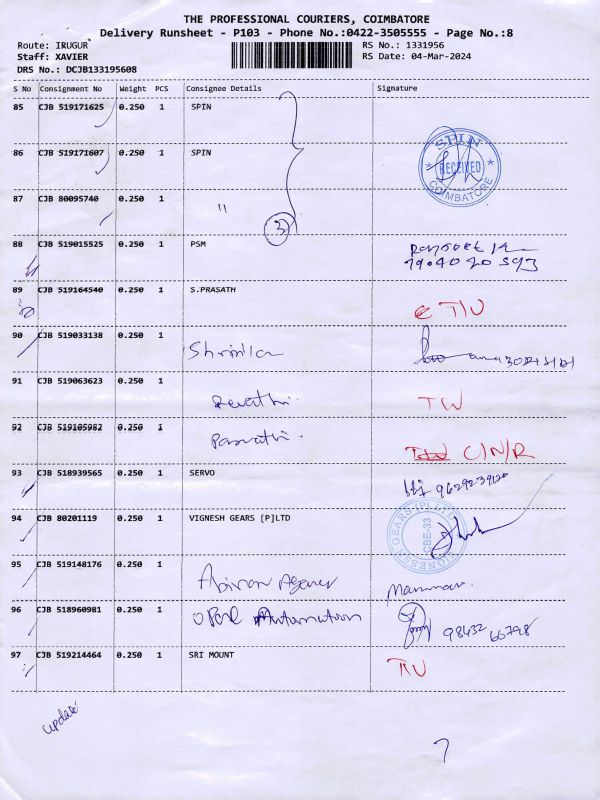 THE PROFESSIONAL COURIERS, COIMBATORE
Delivery Runsheet - P103 - Phone No.:0422-3505555 - Page No.:8
Route: IRUGUR RS No.: 1331956
Staff: XAVIER RS Date: 04-Mar-2024
DRS No.: DCJB133195608
S No Consignment No Weight PCS Consignee Details Signature
85 CJB 519171625 0.250 1 SPIN
86 CJB 519171607 0.250 1 SPIN
SPIN
RECEIVED
COIMBATORE
87 CJB 80095740 0.250 1 "
3
88 CJB 519015525 0.250 1 PSM
89 CJB 519164540 0.250 1 S.PRASATH
90 CJB 519033138 0.250 1
91 CJB 519063623 0.250 1 Revathi.
92 CJB 519105982 0.250 1 Parvathi. C/N/R
93 CJB 518939565 0.250 1 SERVO
94 CJB 80201119 0.250 1 VIGNESH GEARS [P]LTD
CBE-33
95 CJB 519148176 0.250 1
96 CJB 518960981 0.250 1 Automation
98432 66798
97 CJB 519214464 0.250 1 SRI MOUNT
update
7